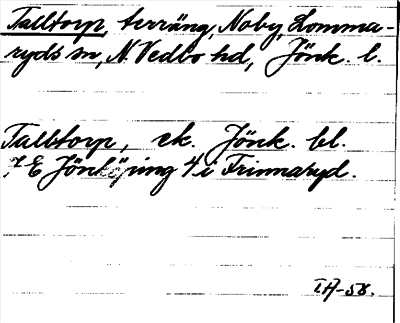 Talltorp, terräng, Noby, Lomma-
ryds sn, N. Vedbo hd, Jönk. l.
Talltorp, ek. Jönk. bl.
7 E Jönköping 4 i Frinnaryd.
IH-58.